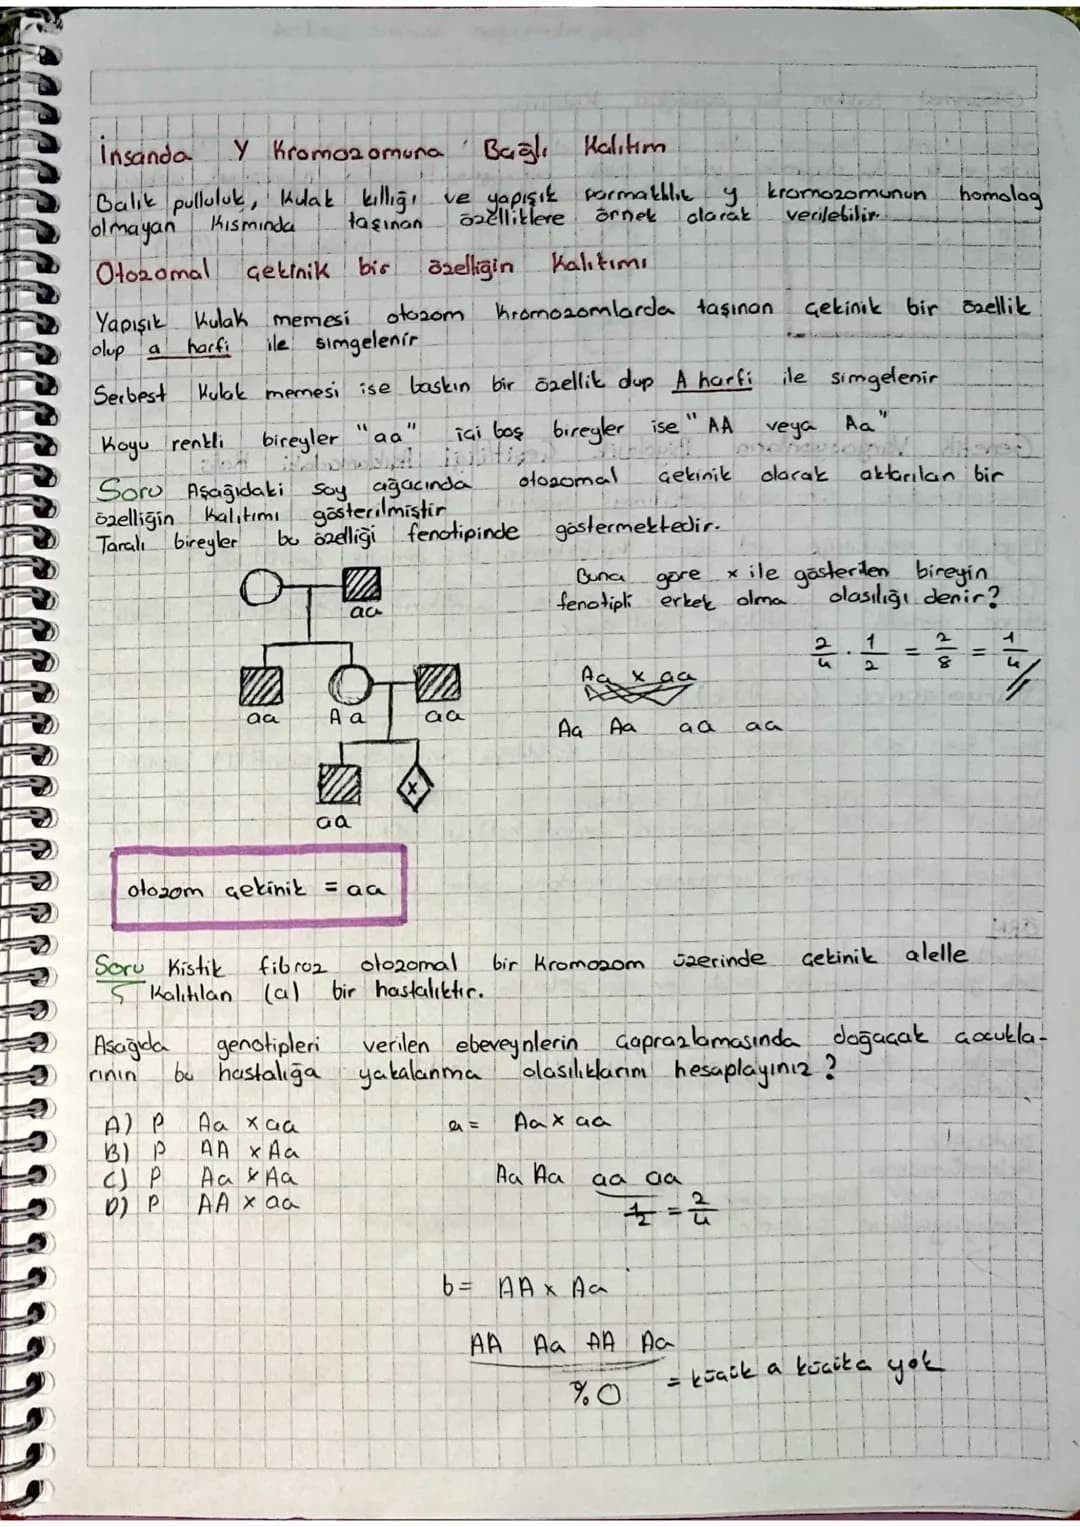 İnsanda Y Kromozomuna Bağlı Kalıtım
Balık pulluluk, Kulak kıllığı ve yapışık parmaklılık y kromozomunun homolog
olmayan Kısmında taşınan özelliklere örnek olarak verilebilir.
Otozomal Çekinik bir özelliğin Kalıtımı
Yapışık Kulak memesi otozom Kromozomlarda taşınan çekinik bir özellik
olup a harfi ile simgelenir
Serbest Kulak memesi ise baskın bir özellik olup A harfi ile simgelenir
Koyu renkli bireyler "aa" içi boş bireyler ise "AA veya Aa"
Soru Aşağıdaki soy ağacında otozomal çekinik olarak aktarılan bir
özelliğin Kalıtımı gösterilmiştir
Taralı bireyler bu özelliği fenotipinde göstermektedir.
Buna göre x ile gösterilen bireyin
fenotipli erkek olma olasılığı denir?
aa
2/4 . 1/2 = 2/8 = 1/4
Aa x aa
aa Aa aa
Aa Aa aa aa
x
aa
otozom çekinik = aa
Soru Kistik fibroz otozomal bir Kromozom üzerinde çekinik alelle
Kalıtılan (a) bir hastalıktır.
Aşağıda genotipleri verilen ebeveynlerin çaprazlamasında doğacak çocukla-
rının bu hastalığa yakalanma olasılıklarını hesaplayınız?
A) P Aa x aa
B) P AA x Aa
C) P Aa x Aa
D) P AA x aa
a = Aa x aa
Aa Aa aa aa
1/2 = 2/4
b = AA x Aa
AA Aa AA Aa
%0 = küçük a küçük a yok